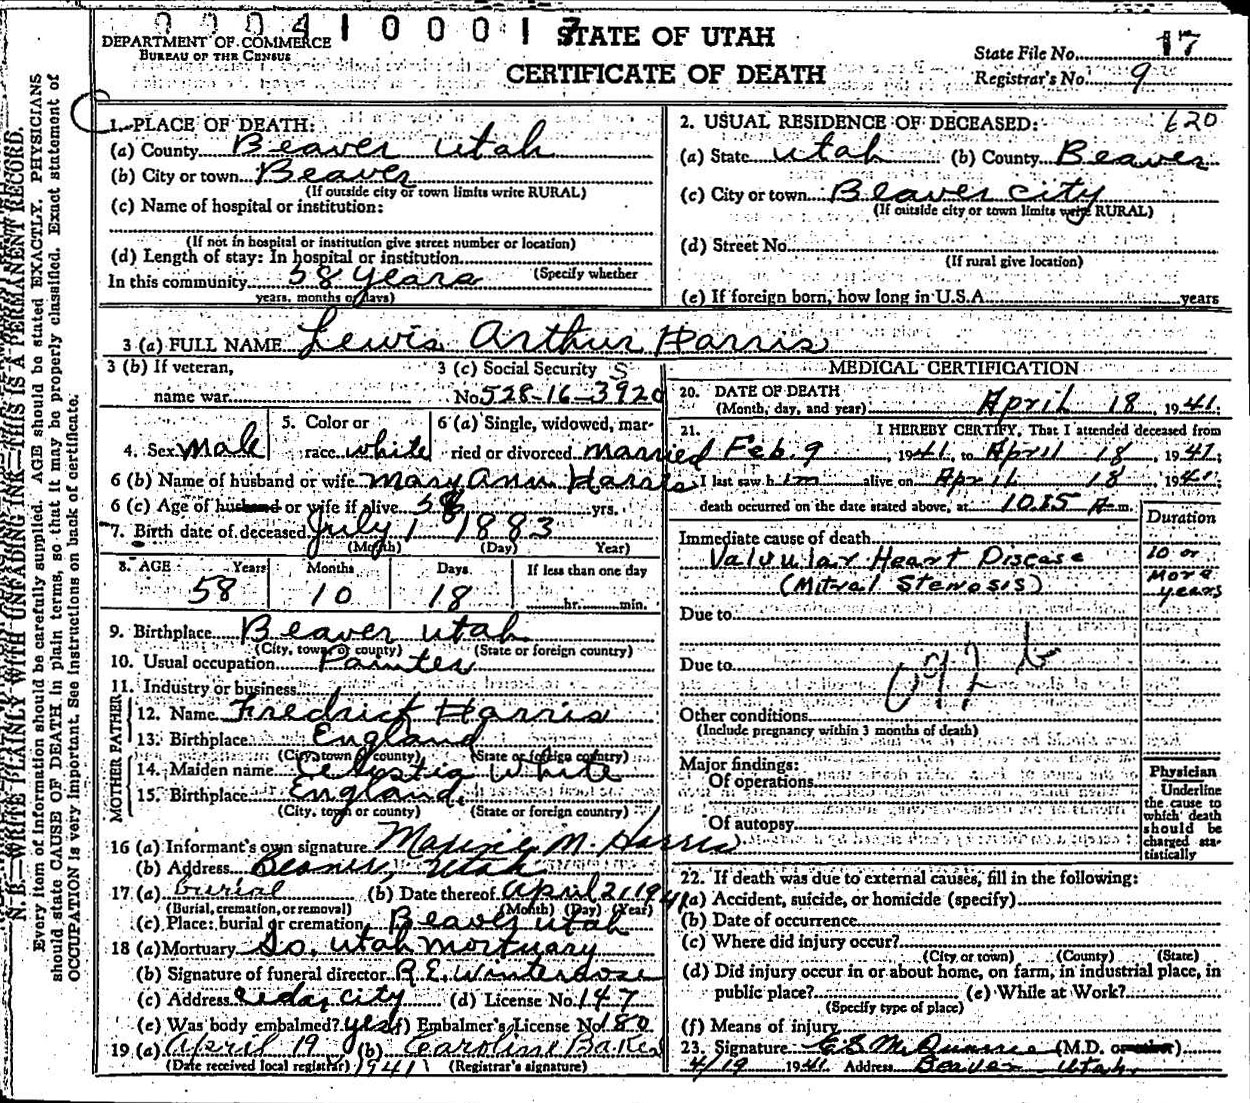 0 0 0 4 1 0 0 0 1 7
STATE OF UTAH
CERTIFICATE OF DEATH
DEPARTMENT OF COMMERCE
BUREAU OF THE CENSUS
State File No. 17
Registrar's No. 9
N. B.—WRITE PLAINLY WITH UNFADING INK—THIS IS A PERMANENT RECORD.
Every item of information should be carefully supplied. AGE should be stated EXACTLY. PHYSICIANS
should state CAUSE OF DEATH in plain terms, so that it may be properly classified. Exact statement of
OCCUPATION is very important. See instructions on back of certificate.
1. PLACE OF DEATH:
(a) County Beaver Utah
(b) City or town Beaver
(If outside city or town limits write RURAL)
(c) Name of hospital or institution:
(If not in hospital or institution give street number or location)
(d) Length of stay: In hospital or institution
(Specify whether
In this community 58 years
years, months or days)
2. USUAL RESIDENCE OF DECEASED: 620
(a) State Utah (b) County Beaver
(c) City or town Beaver City
(If outside city or town limits write RURAL)
(d) Street No.
(If rural give location)
(e) If foreign born, how long in U.S.A. years
3 (a) FULL NAME Lewis Arthur Harris
3 (b) If veteran,
name war
3 (c) Social Security
No. 528-16-3920
4. Sex Male
5. Color or
race white
6 (a) Single, widowed, mar-
ried or divorced married
6 (b) Name of husband or wife Mary Ann Harris
6 (c) Age of husband or wife if alive 58 yrs.
7. Birth date of deceased July 1 1883
(Month) (Day) Year)
8. AGE Years Months Days If less than one day
58 10 18 hr. min.
9. Birthplace Beaver Utah
(City, town or county) (State or foreign country)
10. Usual occupation Painter
11. Industry or business
FATHER
12. Name Fredrick Harris
13. Birthplace England
(City, town or county) (State or foreign country)
MOTHER
14. Maiden name White
15. Birthplace England
(City, town or county) (State or foreign country)
16 (a) Informant's own signature M. Harris
(b) Address Beaver, Utah
17 (a) burial (b) Date thereof April 21 1941
(Burial, cremation, or removal) (Month) (Day) (Year)
(c) Place: burial or cremation Beaver Utah
18 (a) Mortuary So. Utah Mortuary
(b) Signature of funeral director R.E. Winterrose
(c) Address Cedar City (d) License No. 147
(e) Was body embalmed? yes (f) Embalmer's License No. 180
19 (a) April 19 (b) Caroline Baker
(Date received local registrar) 1941 (Registrar's signature)
MEDICAL CERTIFICATION
20. DATE OF DEATH
(Month, day, and year) April 18, 1941
21. I HEREBY CERTIFY, That I attended deceased from
Feb. 9, 1941, to April 18, 1941;
I last saw him alive on April 18 1941;
death occurred on the date stated above, at 10.15 A m.
Duration
Immediate cause of death
Valvular Heart Disease
(Mitral Stenosis)
10 or
more
years
Due to
Due to
092 b
Other conditions
(Include pregnancy within 3 months of death)
Major findings:
Of operations
Of autopsy
Physician
Underline
the cause to
which death
should be
charged sta-
tistically
22. If death was due to external causes, fill in the following:
(a) Accident, suicide, or homicide (specify)
(b) Date of occurrence
(c) Where did injury occur?
(City or town) (County) (State)
(d) Did injury occur in or about home, on farm, in industrial place, in
public place? (e) While at Work?
(Specify type of place)
(f) Means of injury
23. Signature (M.D. or other)
4/19 1941 Address Beaver Utah